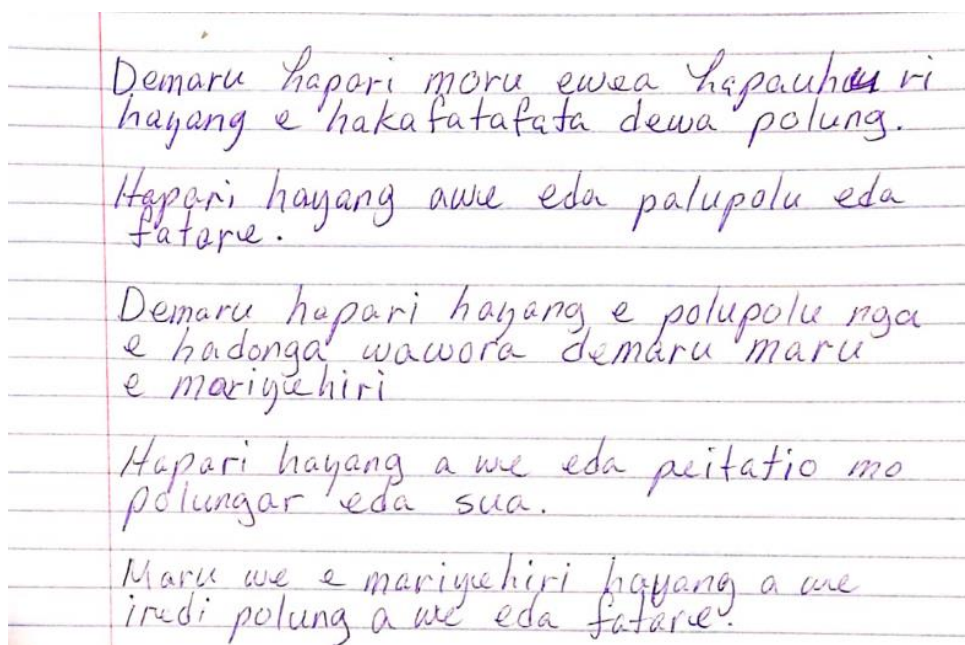 Demaru hapari moru ewea hapauhau ri
hayang e hakafatafata dewa polung.
Hapari hayang awe eda palupolu eda
fatare.
Demaru hapari hayang e polupolu nga
e hadonga wawora demaru maru
e mariyuehiri
Hapari hayang a we eda peitatio mo
polungar eda sua.
Maru we e mariyuehiri hayang a we
iredi polung a we eda fatare.